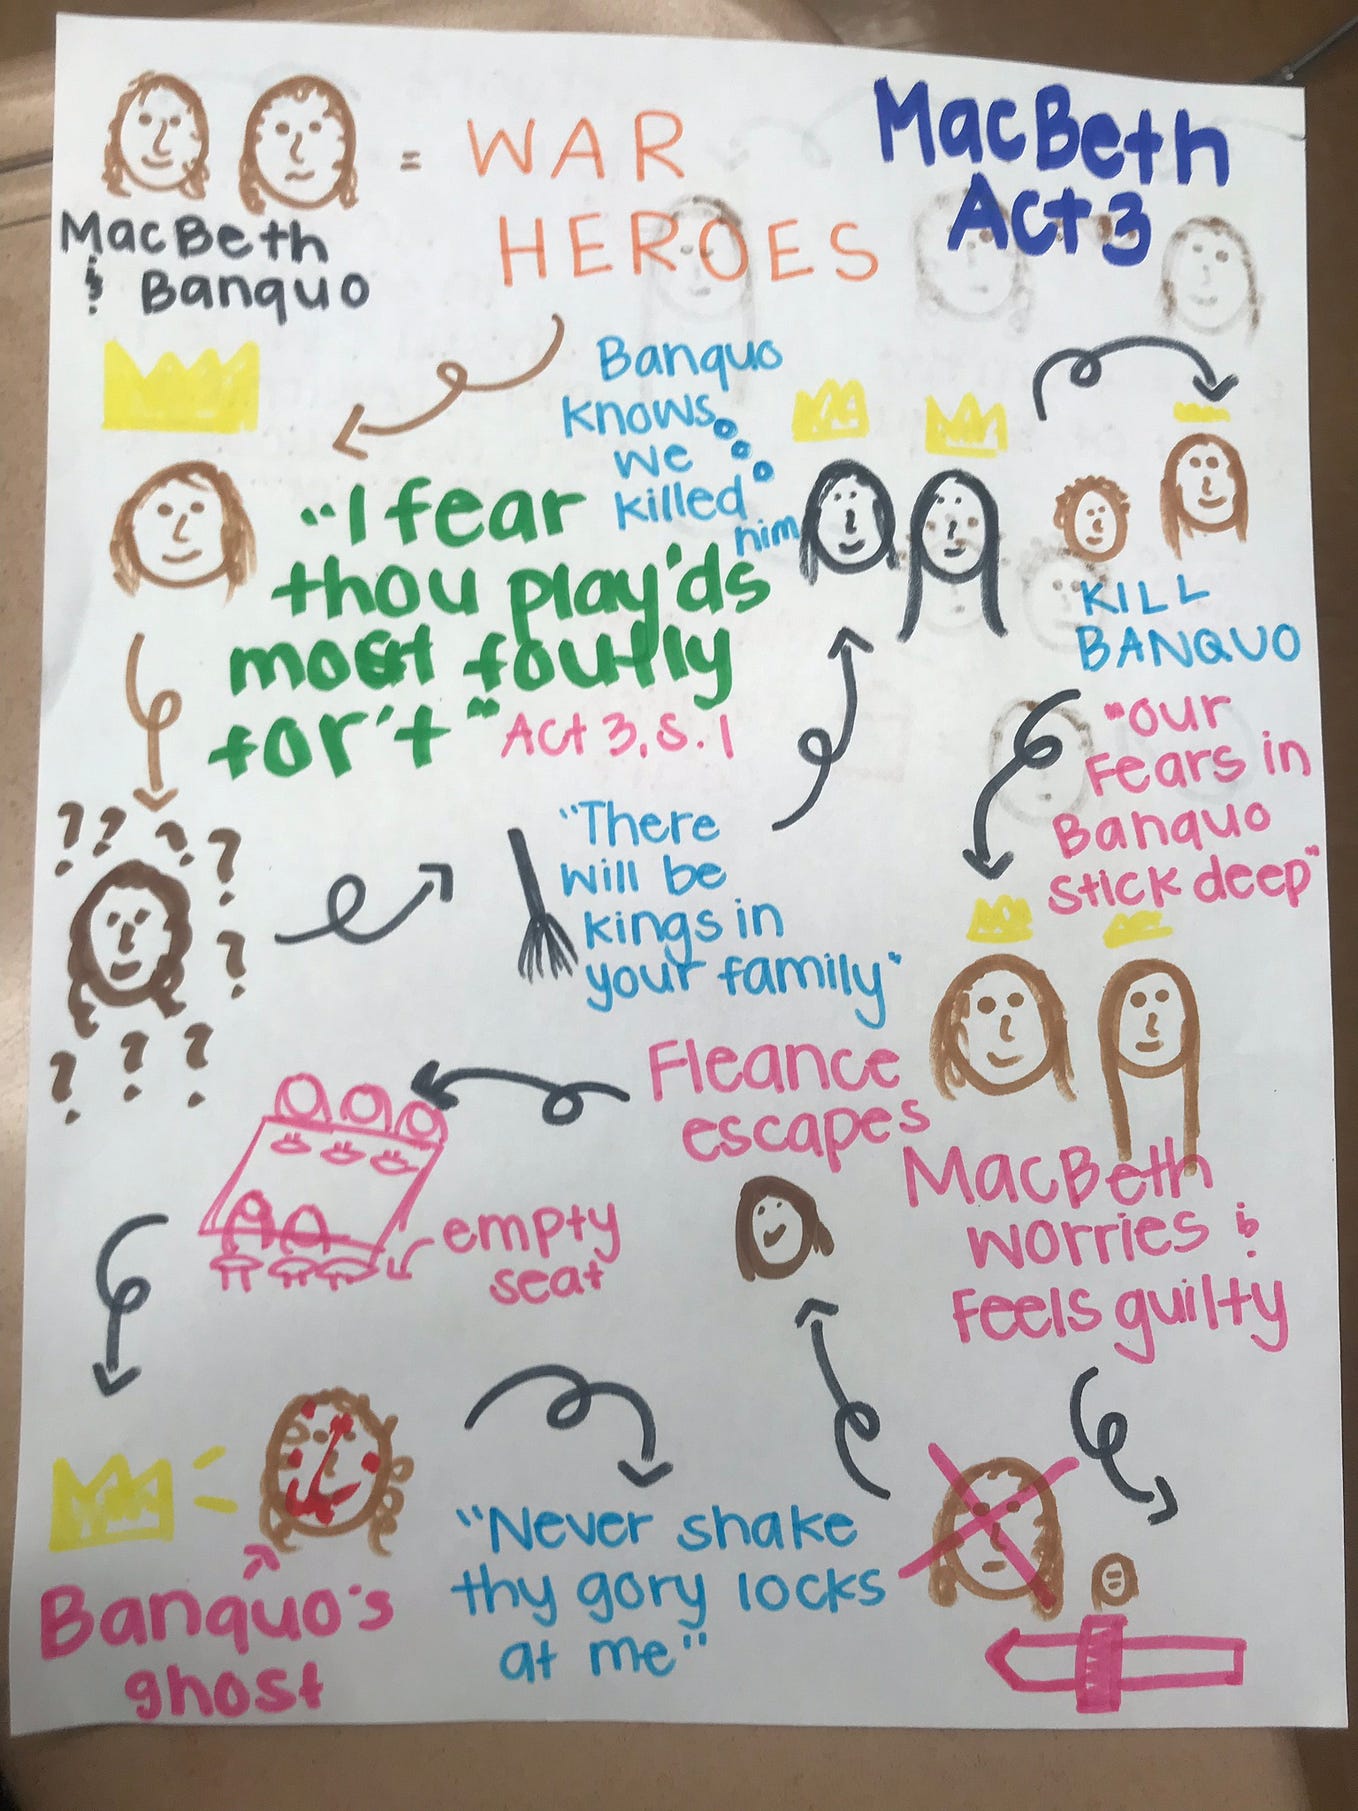 MacBeth
Act 3
= WAR
HEROES
MacBeth
& Banquo
"I fear
thou play'ds
most foully
for't" Act 3, s. 1
? ? ? ? ? ? ? ?
"There
will be
kings in
your family"
Banquo
knows
we
killed
him
KILL
BANQUO
"our
Fears in
Banquo
stick deep"
MacBeth
worries &
Feels guilty
Fleance
escapes
empty
seat
Banquo's
ghost
"Never shake
thy gory locks
at me"